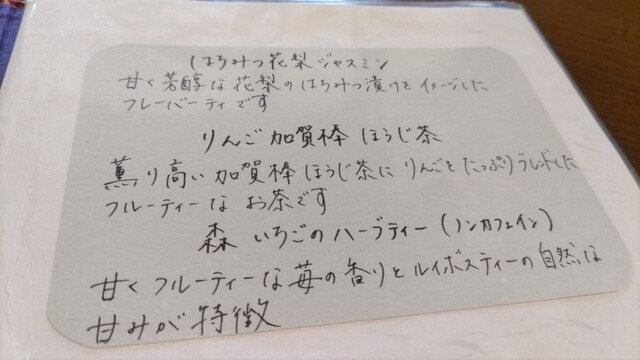 はちみつ花梨ジャスミン
甘く芳醇な花梨のはちみつ漬けをイメージした
フレーバーティです
りんご加賀棒ほうじ茶
薫り高い加賀棒ほうじ茶にりんごをたっぷりブレンドした
フルーティーなお茶です
森いちごのハーブティー(ノンカフェイン)
甘くフルーティーな苺の香りとルイボスティーの自然な
甘みが特徴